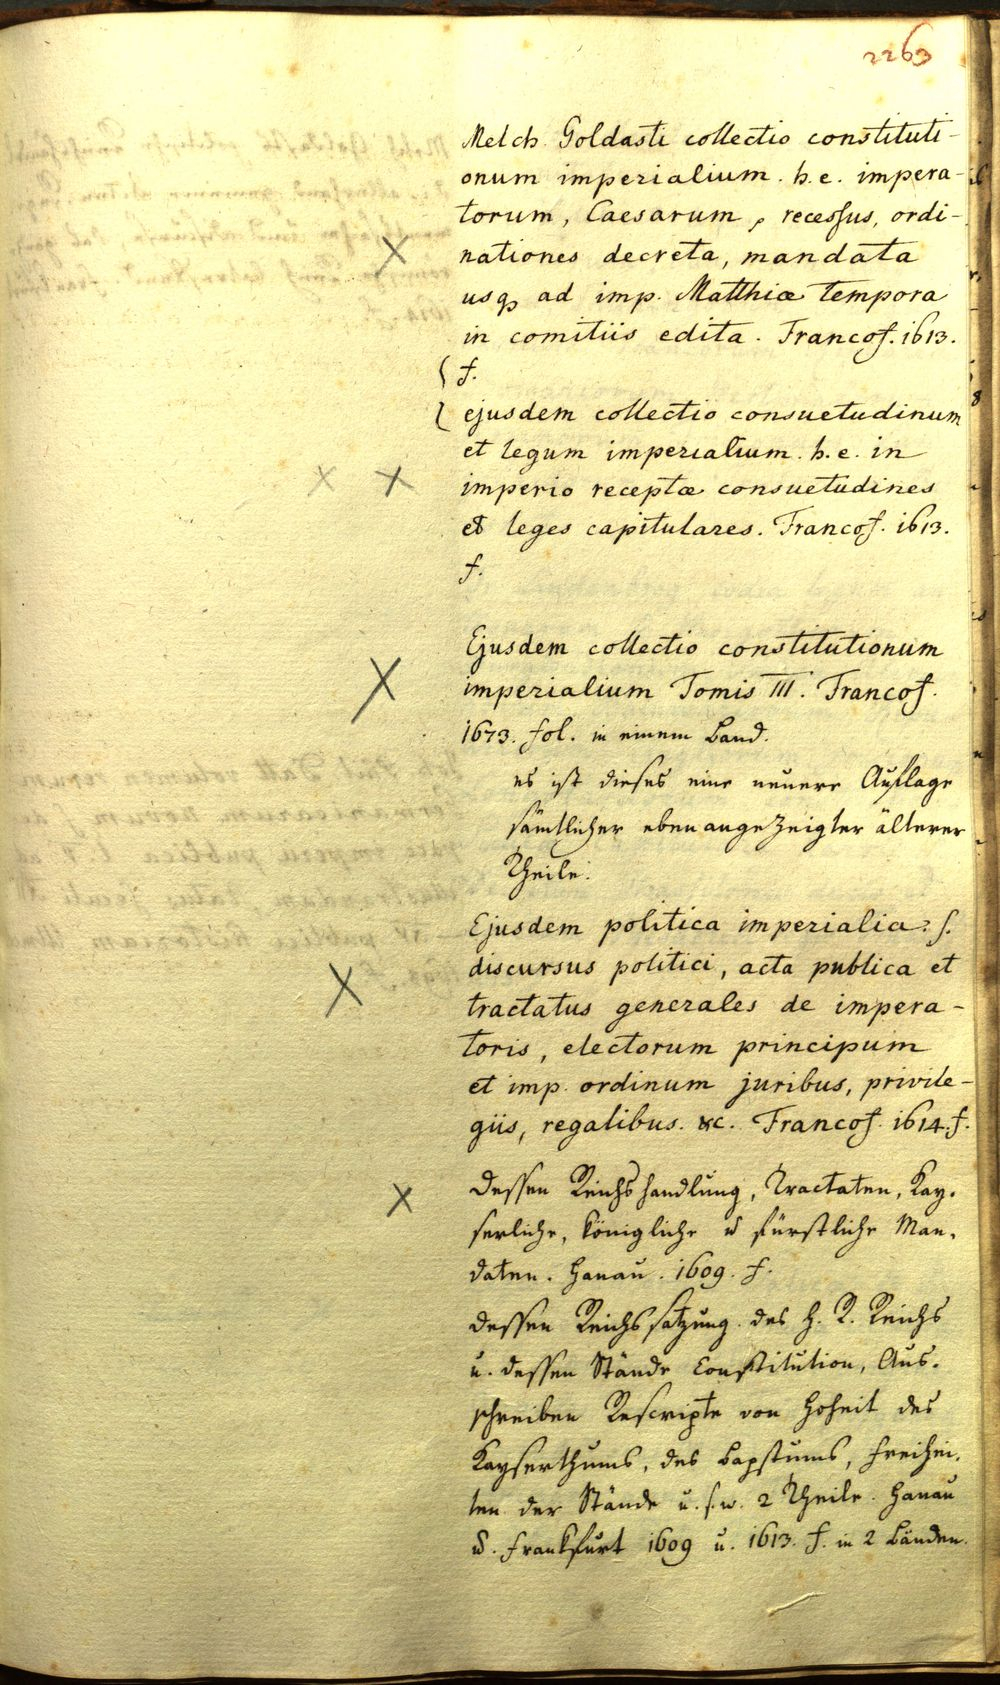 2263
Melch Goldasti collectio constituti-
onum imperialium. h.e. impera-
torum, Caesarum, recessus, ordi-
nationes decreta, mandata
usq ad imp. Matthiæ tempora
in comitiis edita. Francof. 1613.
f.
ejusdem collectio consuetudinum
et legum imperialium. h.e. in
imperio receptæ consuetudines
et leges capitulares. Francof. 1613.
f.
Ejusdem collectio constitutionum
imperialium Tomis III. Francof.
1673. fol. in einem Band.
es ist dieses eine neuere Auflage
sämtlicher eben angezeigter älterer
Theile.
Ejusdem politica imperialia. s.
discursus politici, acta publica et
tractatus generales de impera-
toris, electorum principum
et imp. ordinum juribus, privile-
giis, regalibus. &c. Francof. 1614. f.
Dessen Reichshandlung, Tractaten, Kay-
serliche, Königliche u fürstliche Man-
daten. Hanau. 1609. f.
Dessen Reichssatzung des H. R. Reichs
u. dessen Stände Constitution, Aus-
schreiben Rescripte von Hoheit des
Kayserthums, des Bapstums, Freihei-
ten der Stände u.s.w. 2 Theile. Hanau
u. Frankfurt 1609 u. 1613. f. in 2 Bänden.